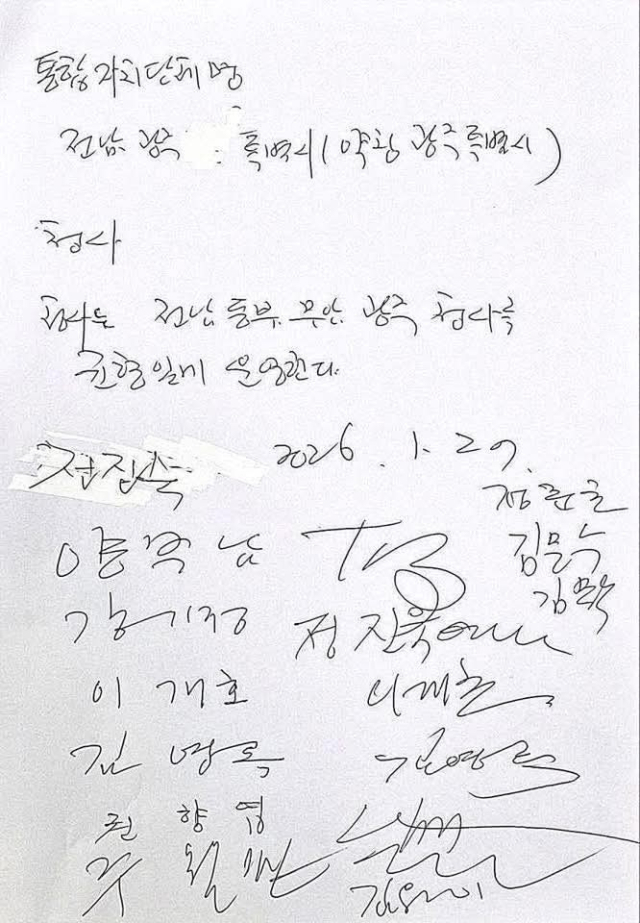 통합자치단체명
전남 광주 특별시 (약칭 광주특별시)
청사
청사는 전남동부 무안 광주 청사를
균형있게 운영한다.
2026. 1. 27.
정준호
김문수
김문수
양부남
강기정
정진욱
이개호 이개호
김영록 김영록
권향엽